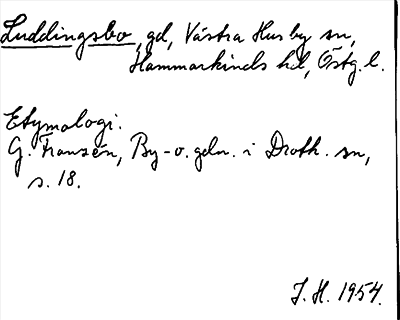 Luddingsbo, gd, Västra Husby sn,
Hammarkinds hd, Östg. l.
Etymologi.
G. Franzén, By- o. gdn. i Droth. sn,
s. 18.
J. H. 1954.